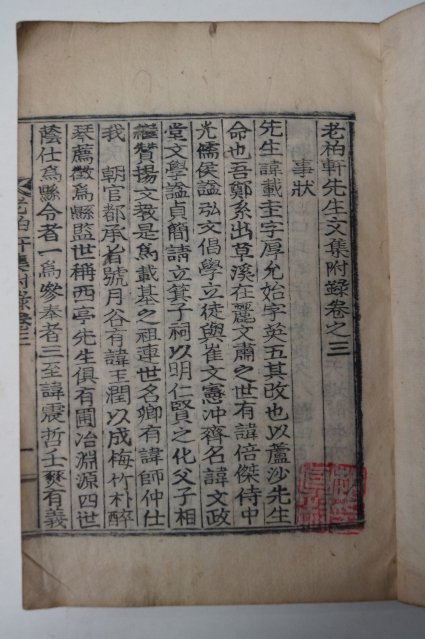 老柏軒先生文集附錄卷之三
事狀
先生諱載圭字厚允始字英五其改也以蘆沙先生
命也吾鄭系出草溪在麗文肅之世有諱倍傑侍中
光儒侯謚弘文倡學立徒與崔文憲冲齊名諱文政
堂文學謚貞簡請立箕子祠以明仁賢之化父子相
繼贊揚文教是爲載基之祖連世名卿有諱師仲仕
我 朝官都承旨號月谷有諱玉潤以成梅竹朴醉
琴薦徵爲縣監世稱西亭先生俱有圃冶淵源四世
蔭仕爲縣令者一爲參奉者三至諱震哲壬燹有義
老柏軒集附錄卷三